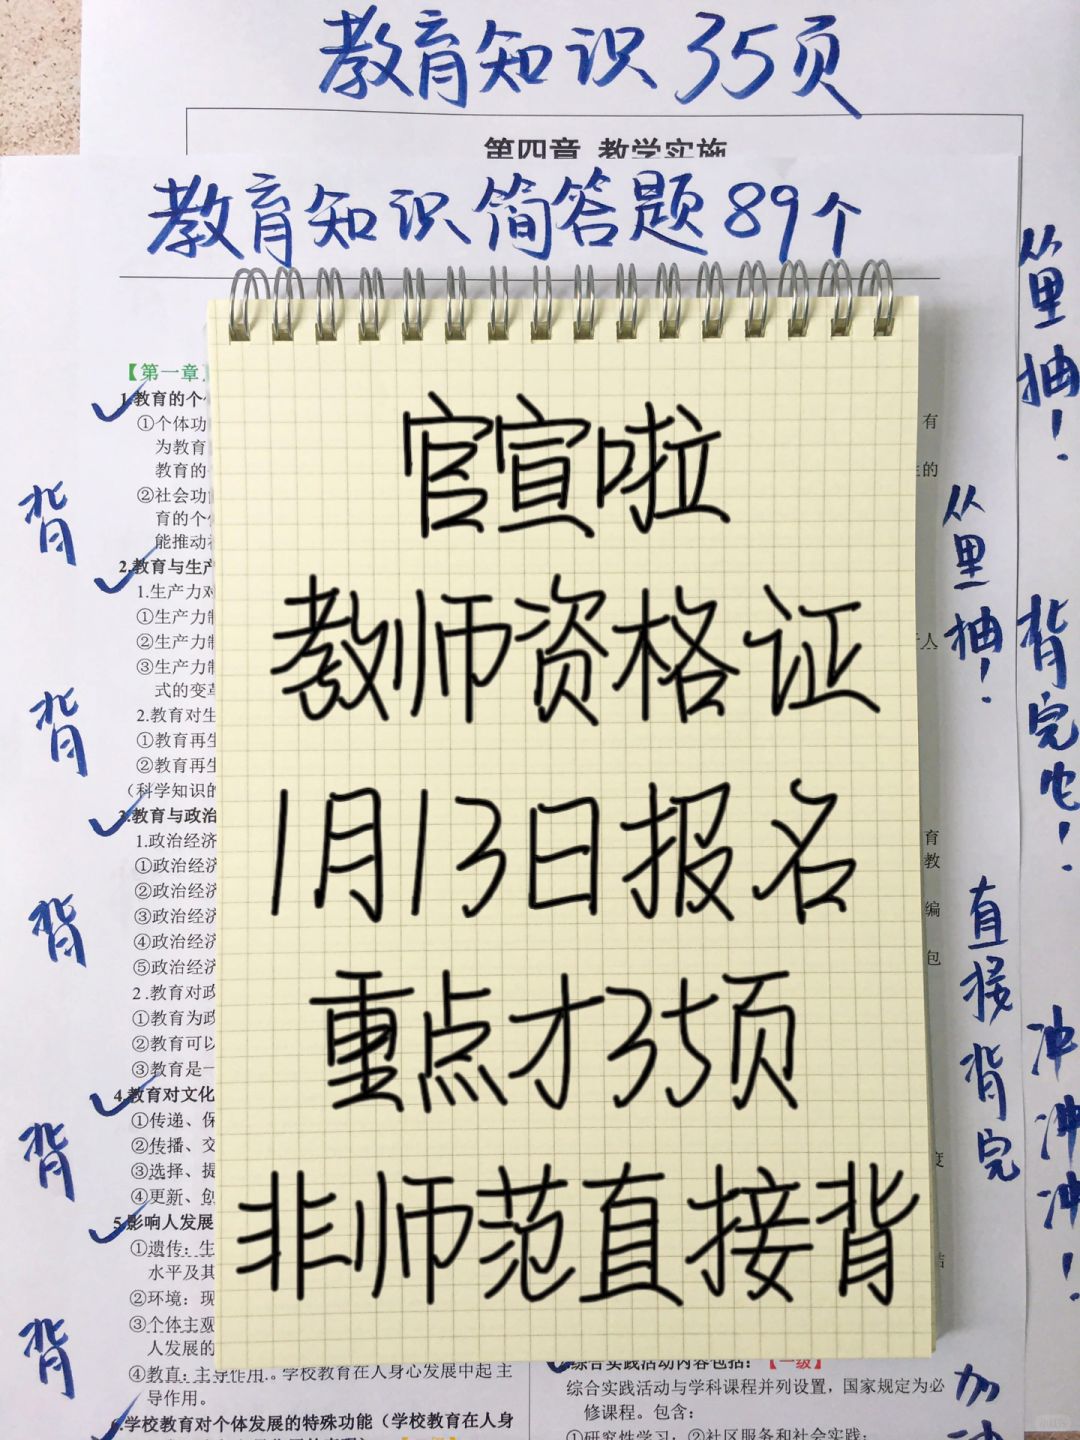 教育知识35页
第四章 教学实施
教育知识简答题89个
官宣啦
教师资格证
1月13日报名
重点才35页
非师范直接背
【第一章】
1.教育的个
①个体功
为教育
教育的
②社会功
育的个
能推动
2.教育与生产
1.生产力对
①生产力制
②生产力制
③生产力制
式的变革
2.教育对生
①教育再生
②教育再生
(科学知识的
3.教育与政治
1.政治经济
①政治经济
②政治经济
③政治经济
④政治经济
⑤政治经济
2.教育对政
①教育为政
②教育可以
③教育是一
4.教育对文化
①传递、保
②传播、交
③选择、提
④更新、创
5.影响人发展
①遗传：生
水平及其
②环境：现
③个体主观
人发展的
④教育：主导作用。学校教育在人身心发展中起主
导作用。
6.学校教育对个体发展的特殊功能（学校教育在人身
有
的
人
育
教
编
包
度
综合实践活动内容包括：【一级】
综合实践活动与学科课程并列设置，国家规定为必
修课程。包含：
①研究性学习；②社区服务和社会实践；
背
背
背
背
背
从里抽！
从里抽！
背完它！
直接背完
冲冲冲！
加